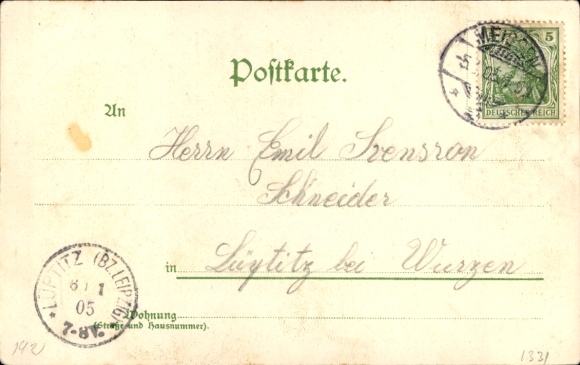 MEISSEN
5
DEUTSCHES REICH
Postkarte.
An
Herrn Emil Svensson
Schneider
in Lüptitz bei Wurzen
LÜPTITZ (BZ. LEIPZIG)
8 1
05
7-8V.
Wohnung
(Straße und Hausnummer).
1331